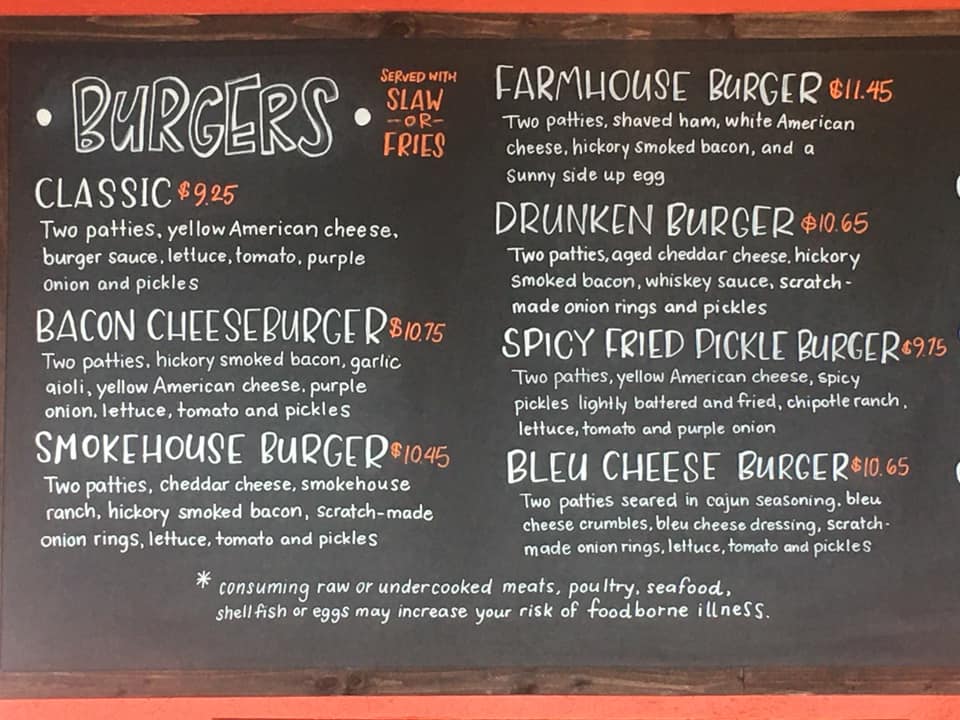 BURGERS
SERVED WITH
SLAW
-OR-
FRIES
CLASSIC $9.25
Two patties, yellow American cheese,
burger sauce, lettuce, tomato, purple
onion and pickles
BACON CHEESEBURGER $10.75
Two patties, hickory smoked bacon, garlic
aioli, yellow American cheese, purple
onion, lettuce, tomato and pickles
SMOKEHOUSE BURGER $10.45
Two patties, cheddar cheese, smokehouse
ranch, hickory smoked bacon, scratch-made
onion rings, lettuce, tomato and pickles
FARMHOUSE BURGER $11.45
Two patties, shaved ham, white American
cheese, hickory smoked bacon, and a
sunny side up egg
DRUNKEN BURGER $10.65
Two patties, aged cheddar cheese, hickory
smoked bacon, whiskey sauce, scratch-
made onion rings and pickles
SPICY FRIED PICKLE BURGER $9.75
Two patties, yellow American cheese, spicy
pickles lightly battered and fried, chipotle ranch,
lettuce, tomato and purple onion
BLEU CHEESE BURGER $10.65
Two patties seared in cajun seasoning, bleu
cheese crumbles, bleu cheese dressing, scratch-
made onion rings, lettuce, tomato and pickles
* consuming raw or undercooked meats, poultry, seafood,
shellfish or eggs may increase your risk of foodborne illness.